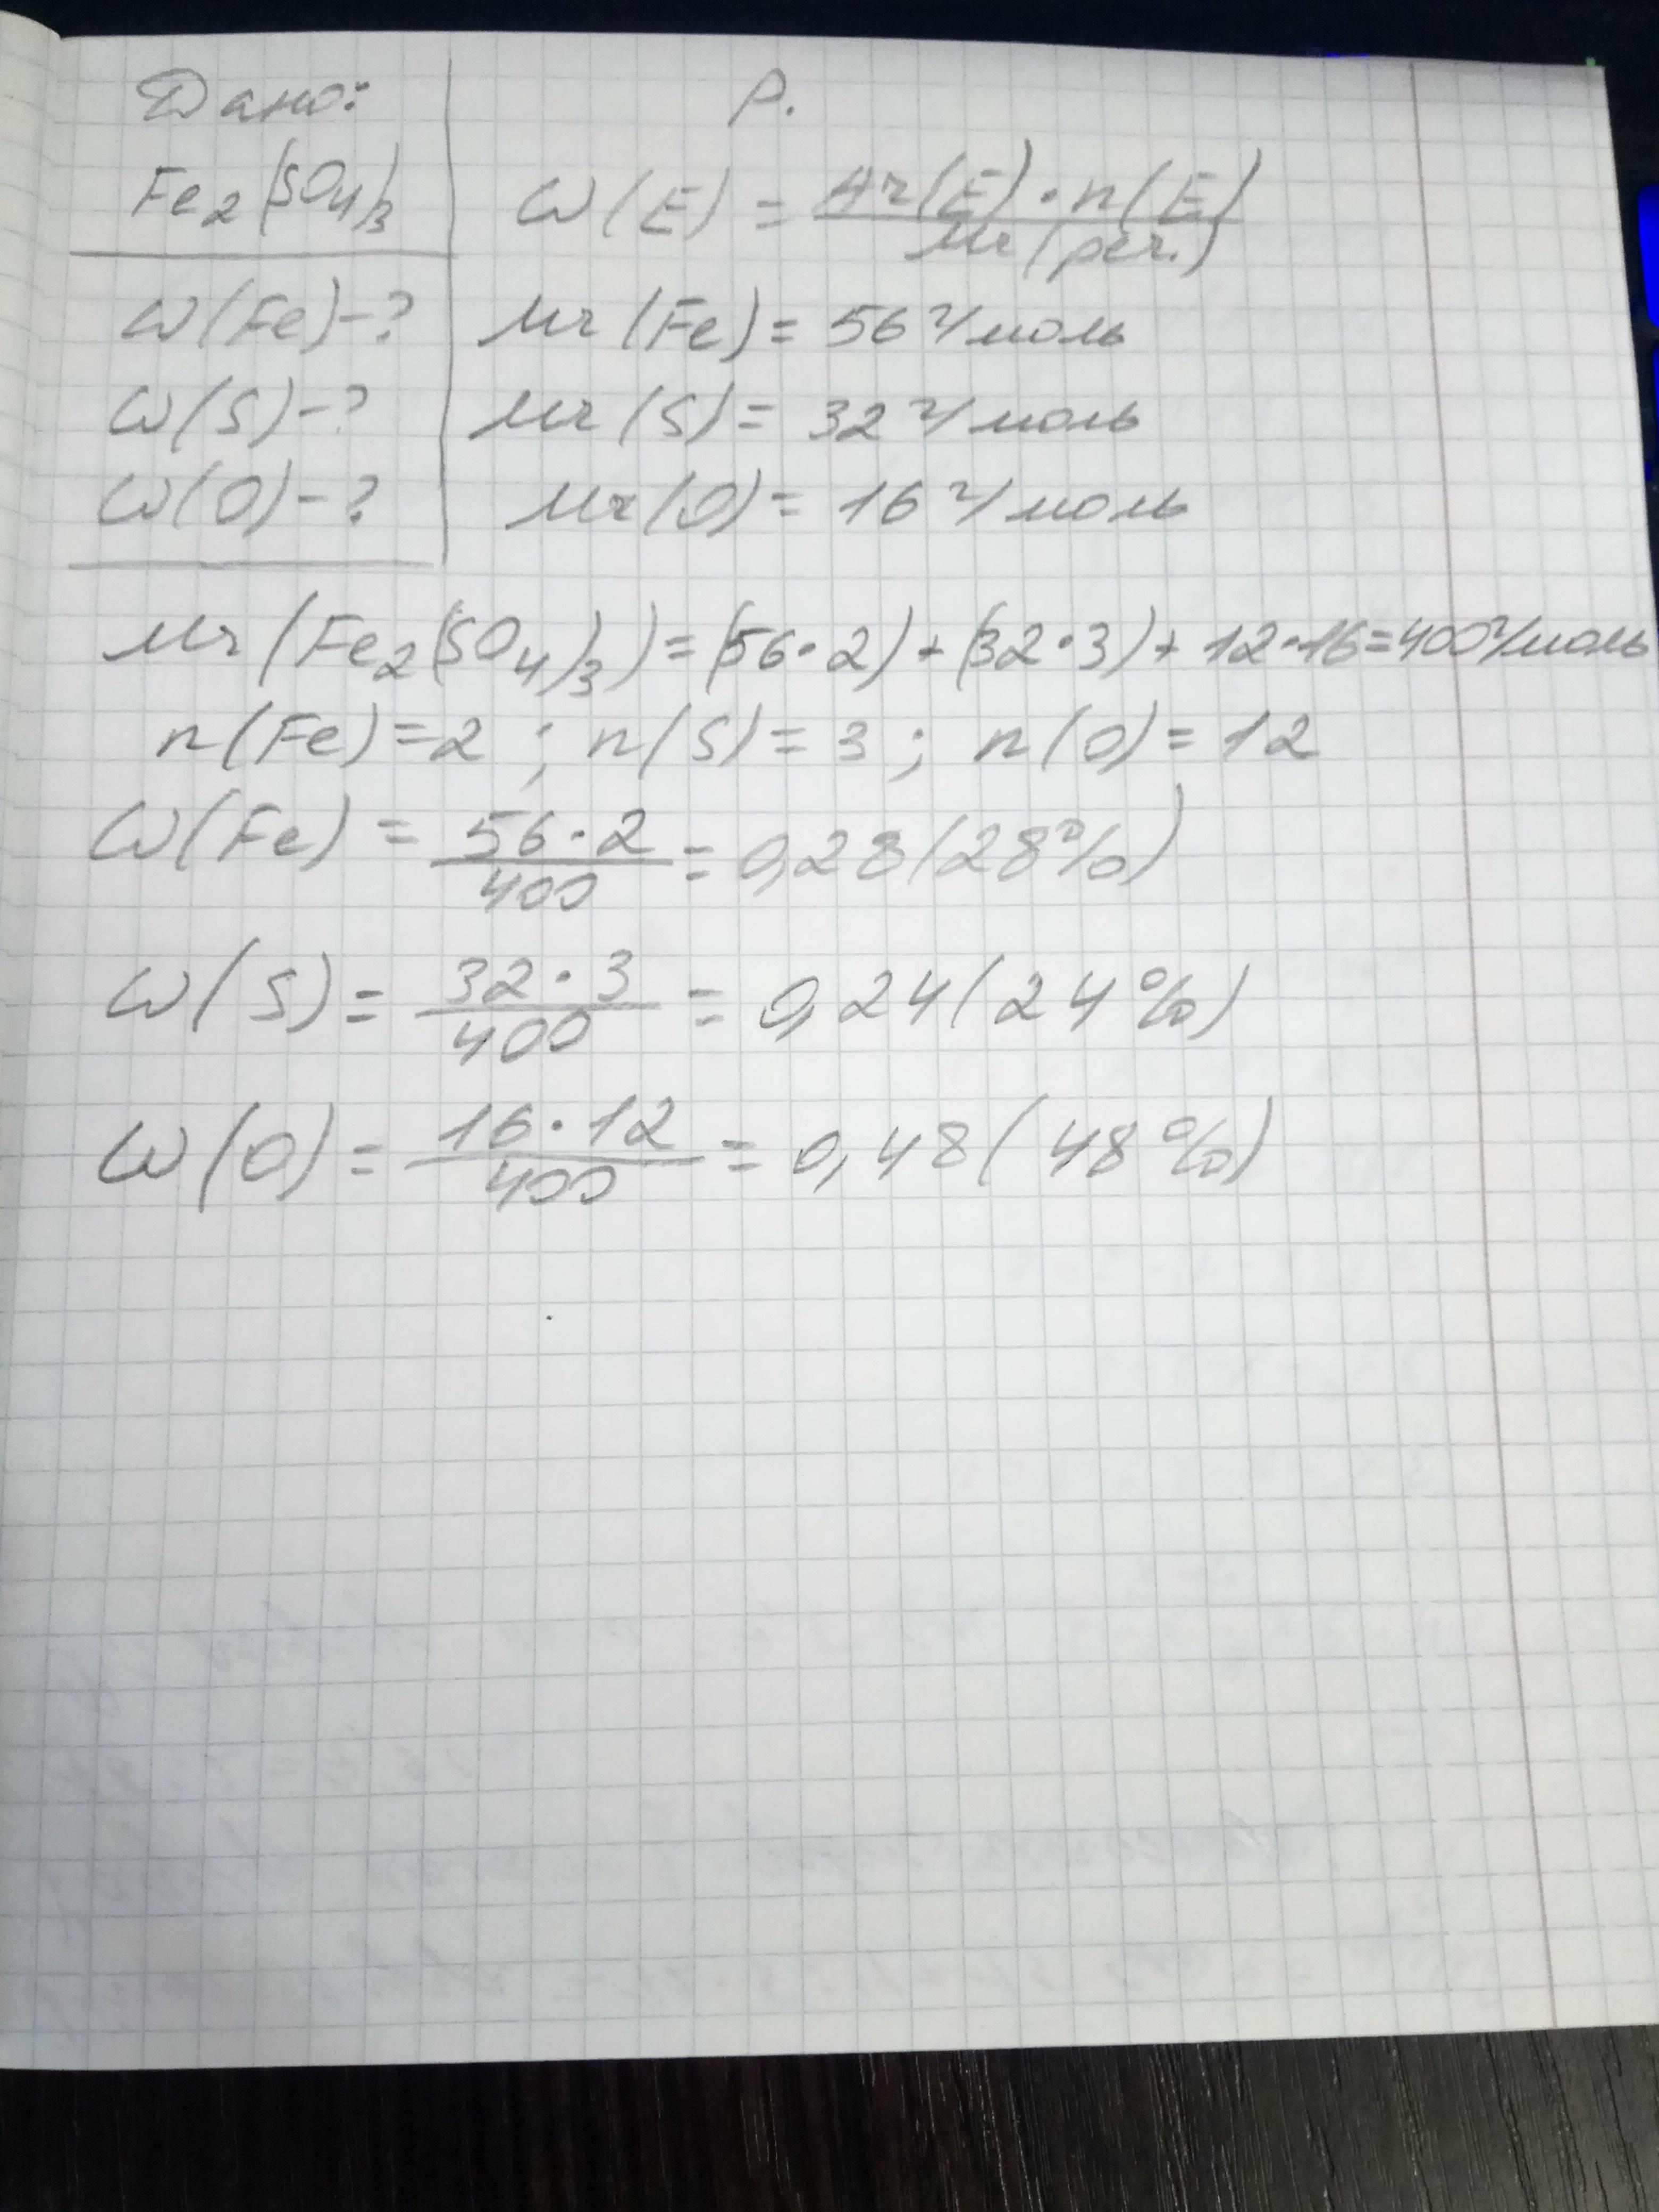 Дано:
Fe₂(SO₄)₃
ω(Fe)-?
ω(S)-?
ω(O)-?
Р.
ω(E) = Ar(E)·n(E) / Mr(реч.)
Mr(Fe) = 56 г/моль
Mr(S) = 32 г/моль
Mr(O) = 16 г/моль
Mr(Fe₂(SO₄)₃) = (56·2) + (32·3) + 12·16 = 400 г/моль
n(Fe) = 2 ; n(S) = 3 ; n(O) = 12
ω(Fe) = 56·2 / 400 = 0,28 (28%)
ω(S) = 32·3 / 400 = 0,24 (24%)
ω(O) = 16·12 / 400 = 0,48 (48%)